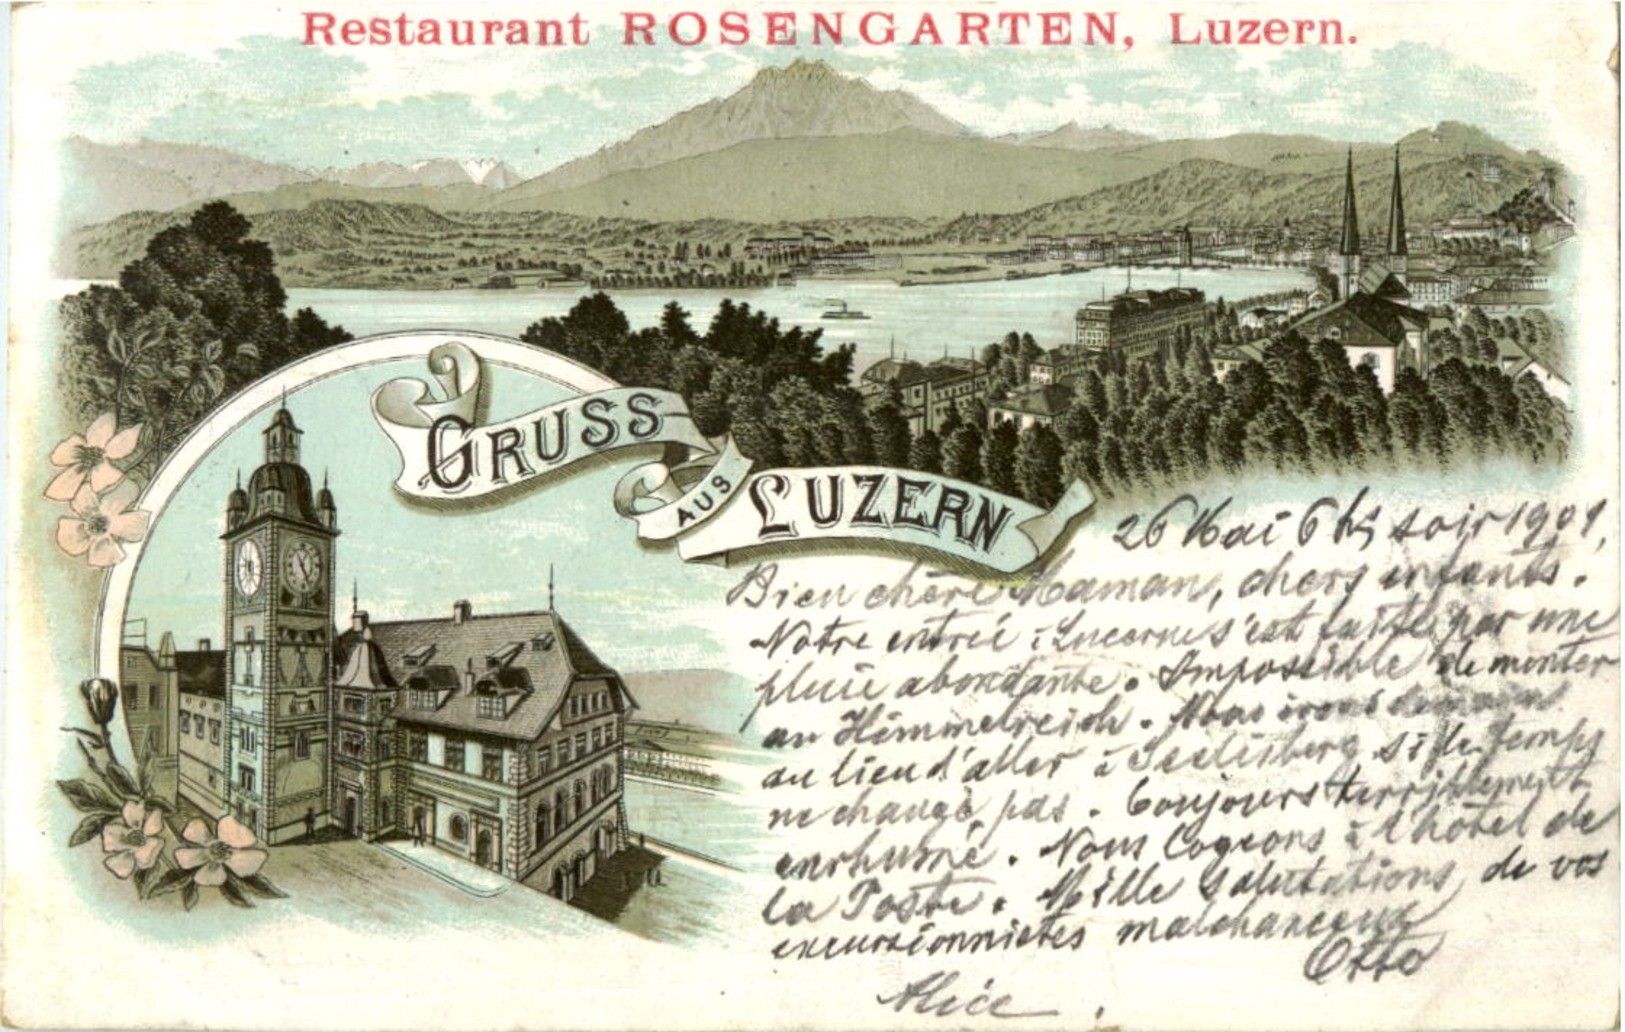 Restaurant ROSENGARTEN, Luzern.
GRUSS
AUS
LUZERN
26 Mai 6 hs soir 1901,
Bien chère Maman, chers enfants.
Notre entrée à Lucerne s'est faite par une
pluie abondante. Impossible de monter
au Himmelreich. Nous irons
au lieu d'aller à Seelisberg, si le temps
ne change pas. Toujours terriblement
enrhumé. Nous logeons à l'hôtel de
la Poste. Mille salutations de vos
excursionnistes malchanceux
Otto
Alice.